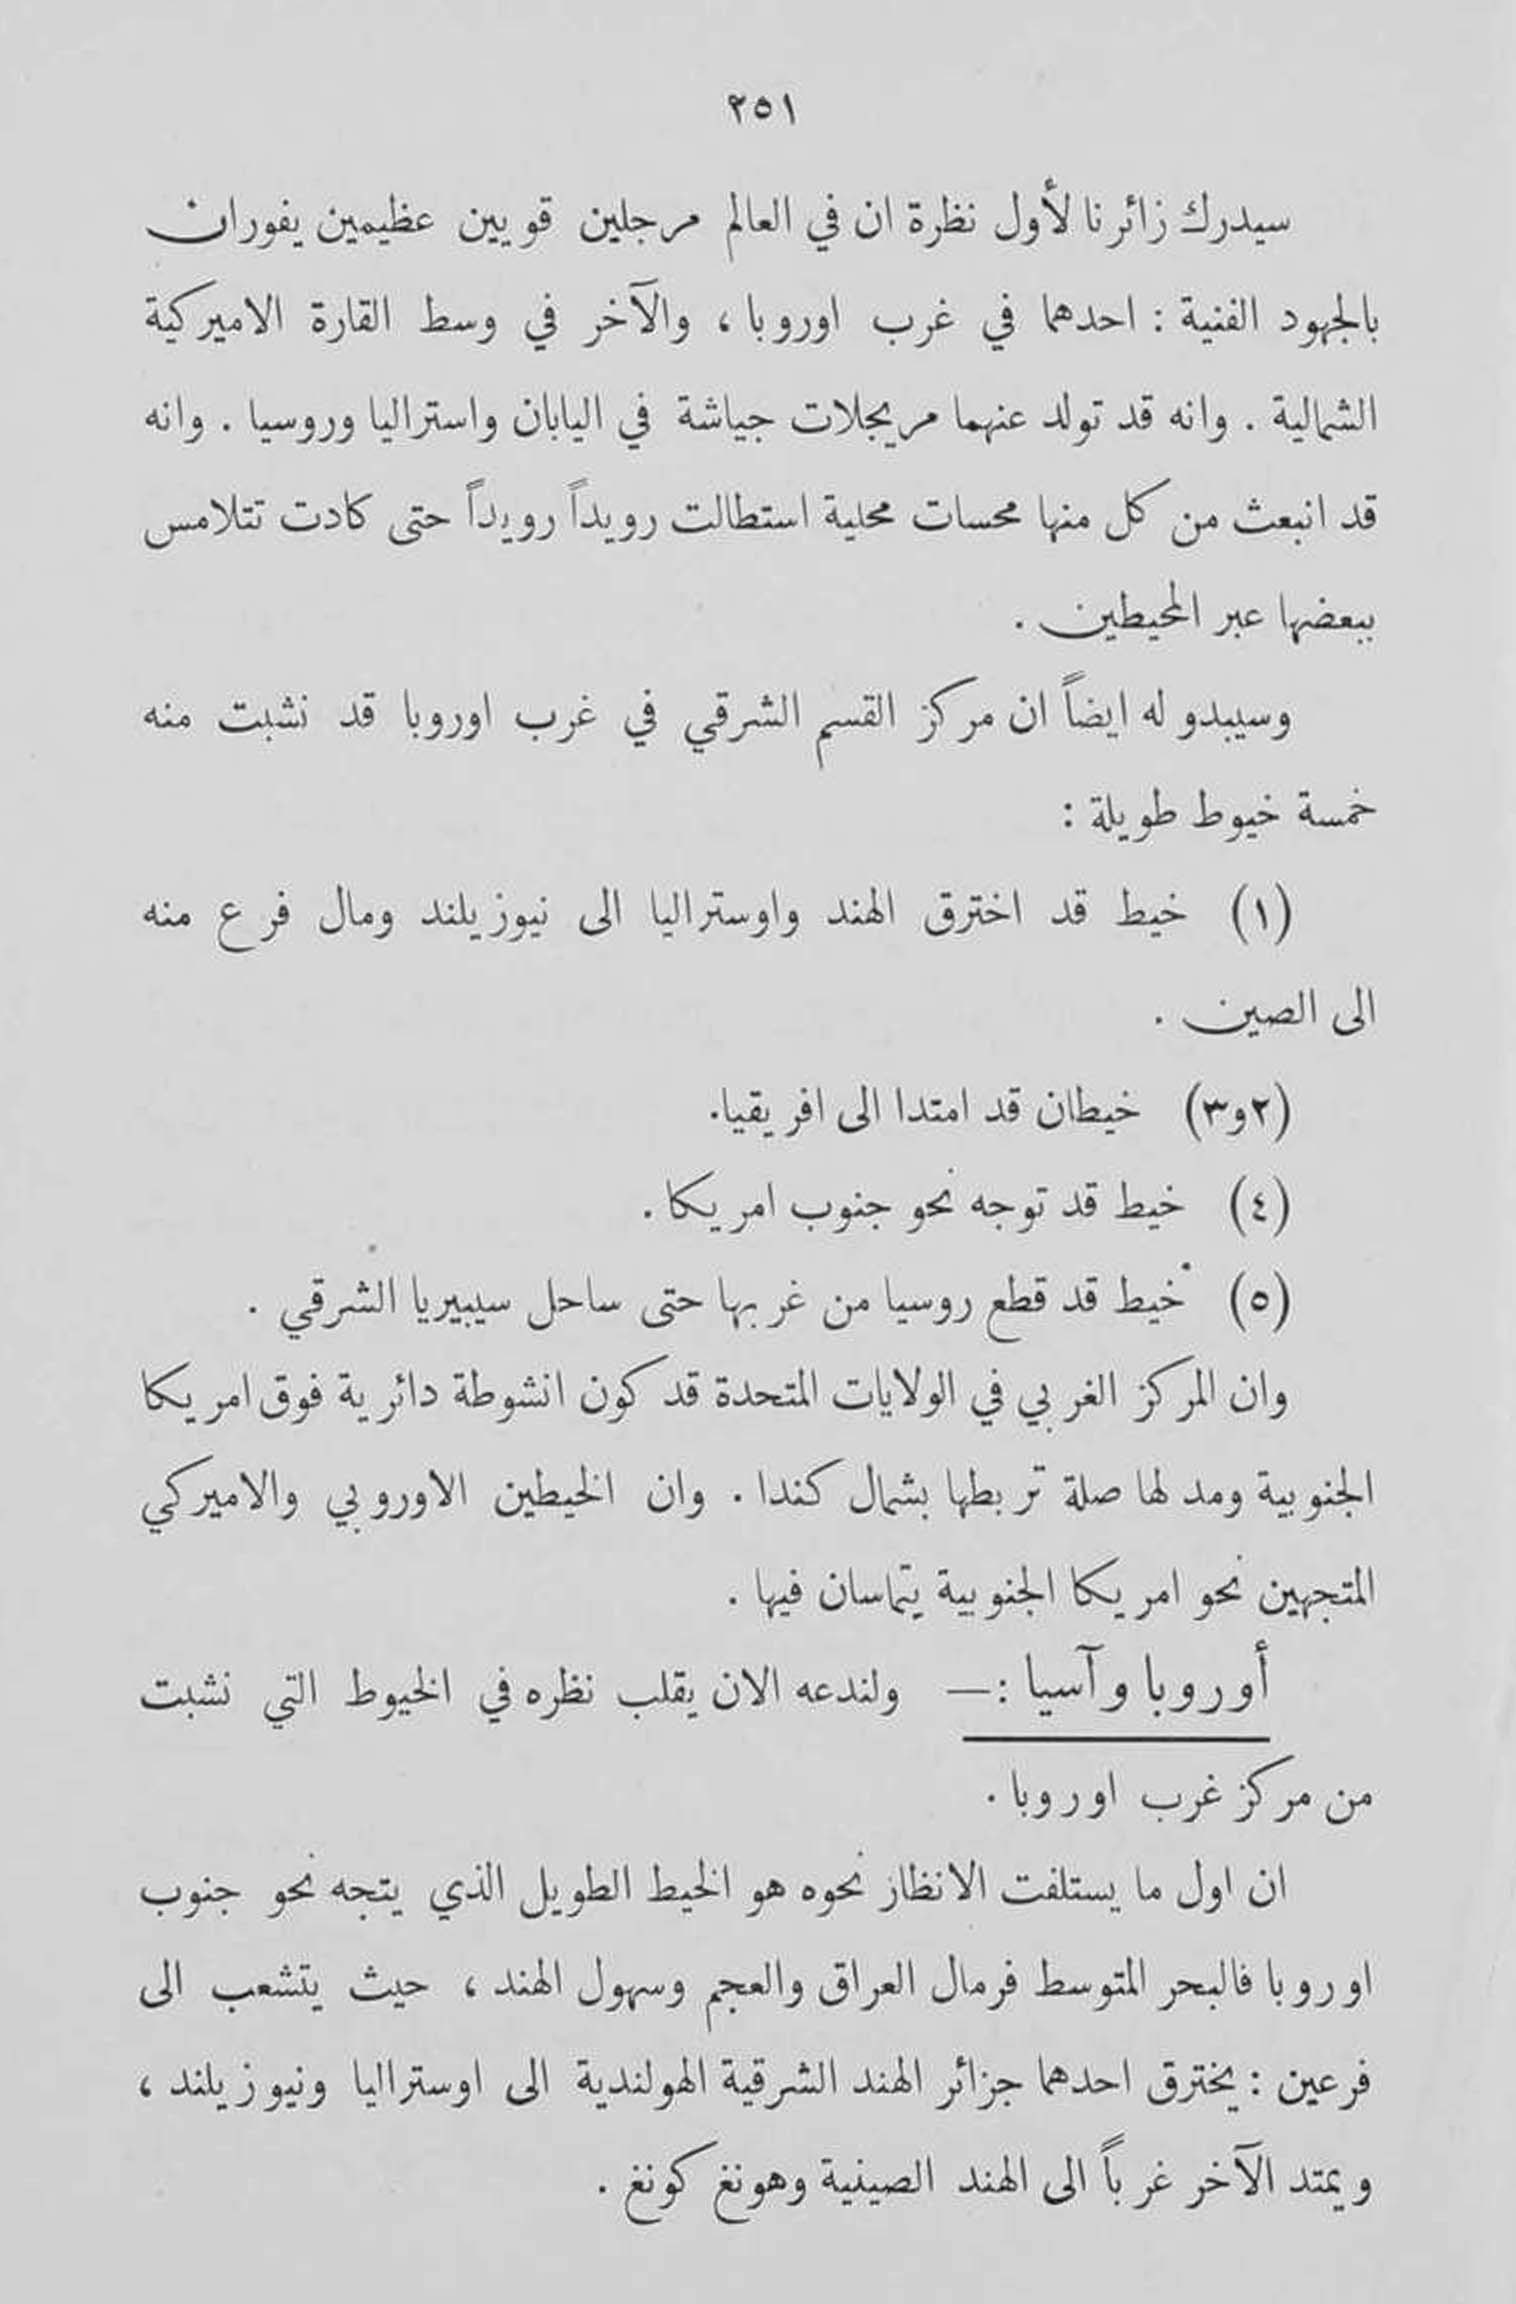 ٢٥١
سيدرك زائرنا لأول نظرة ان في العالم مرجلين قويين عظيمين يفوران
بالجهود الفنية : احدهما في غرب اوروبا ، والآخر في وسط القارة الاميركية
الشمالية . وانه قد تولد عنهما مريجلات جياشة في اليابان واستراليا وروسيا . وانه
قد انبعث من كل منها محسات محلية استطالت رويداً رويداً حتى كادت تتلامس
ببعضها عبر المحيطين .
وسيبدو له ايضاً ان مركز القسم الشرقي في غرب اوروبا قد نشبت منه
خمسة خيوط طويلة :
(١) خيط قد اخترق الهند واوستراليا الى نيوزيلند ومال فرع منه
الى الصين .
(٢و٣) خيطان قد امتدا الى افريقيا.
(٤) خيط قد توجه نحو جنوب امريكا .
(٥) خيط قد قطع روسيا من غربها حتى ساحل سيبيريا الشرقي .
وان المركز الغربي في الولايات المتحدة قد كون انشوطة دائرية فوق امريكا
الجنوبية ومد لها صلة تربطها بشمال كندا . وان الخيطين الاوروبي والاميركي
المتجهين نحو امريكا الجنوبية يتماسان فيها .
أوروبا وآسيا :— ولندعه الان يقلب نظره في الخيوط التي نشبت
من مركز غرب اوروبا .
ان اول ما يستلفت الانظار نحوه هو الخيط الطويل الذي يتجه نحو جنوب
اوروبا فالبحر المتوسط فرمال العراق والعجم وسهول الهند ، حيث يتشعب الى
فرعين : يخترق احدهما جزائر الهند الشرقية الهولندية الى اوستراليا ونيوزيلند ،
ويمتد الآخر غرباً الى الهند الصينية وهونغ كونغ .